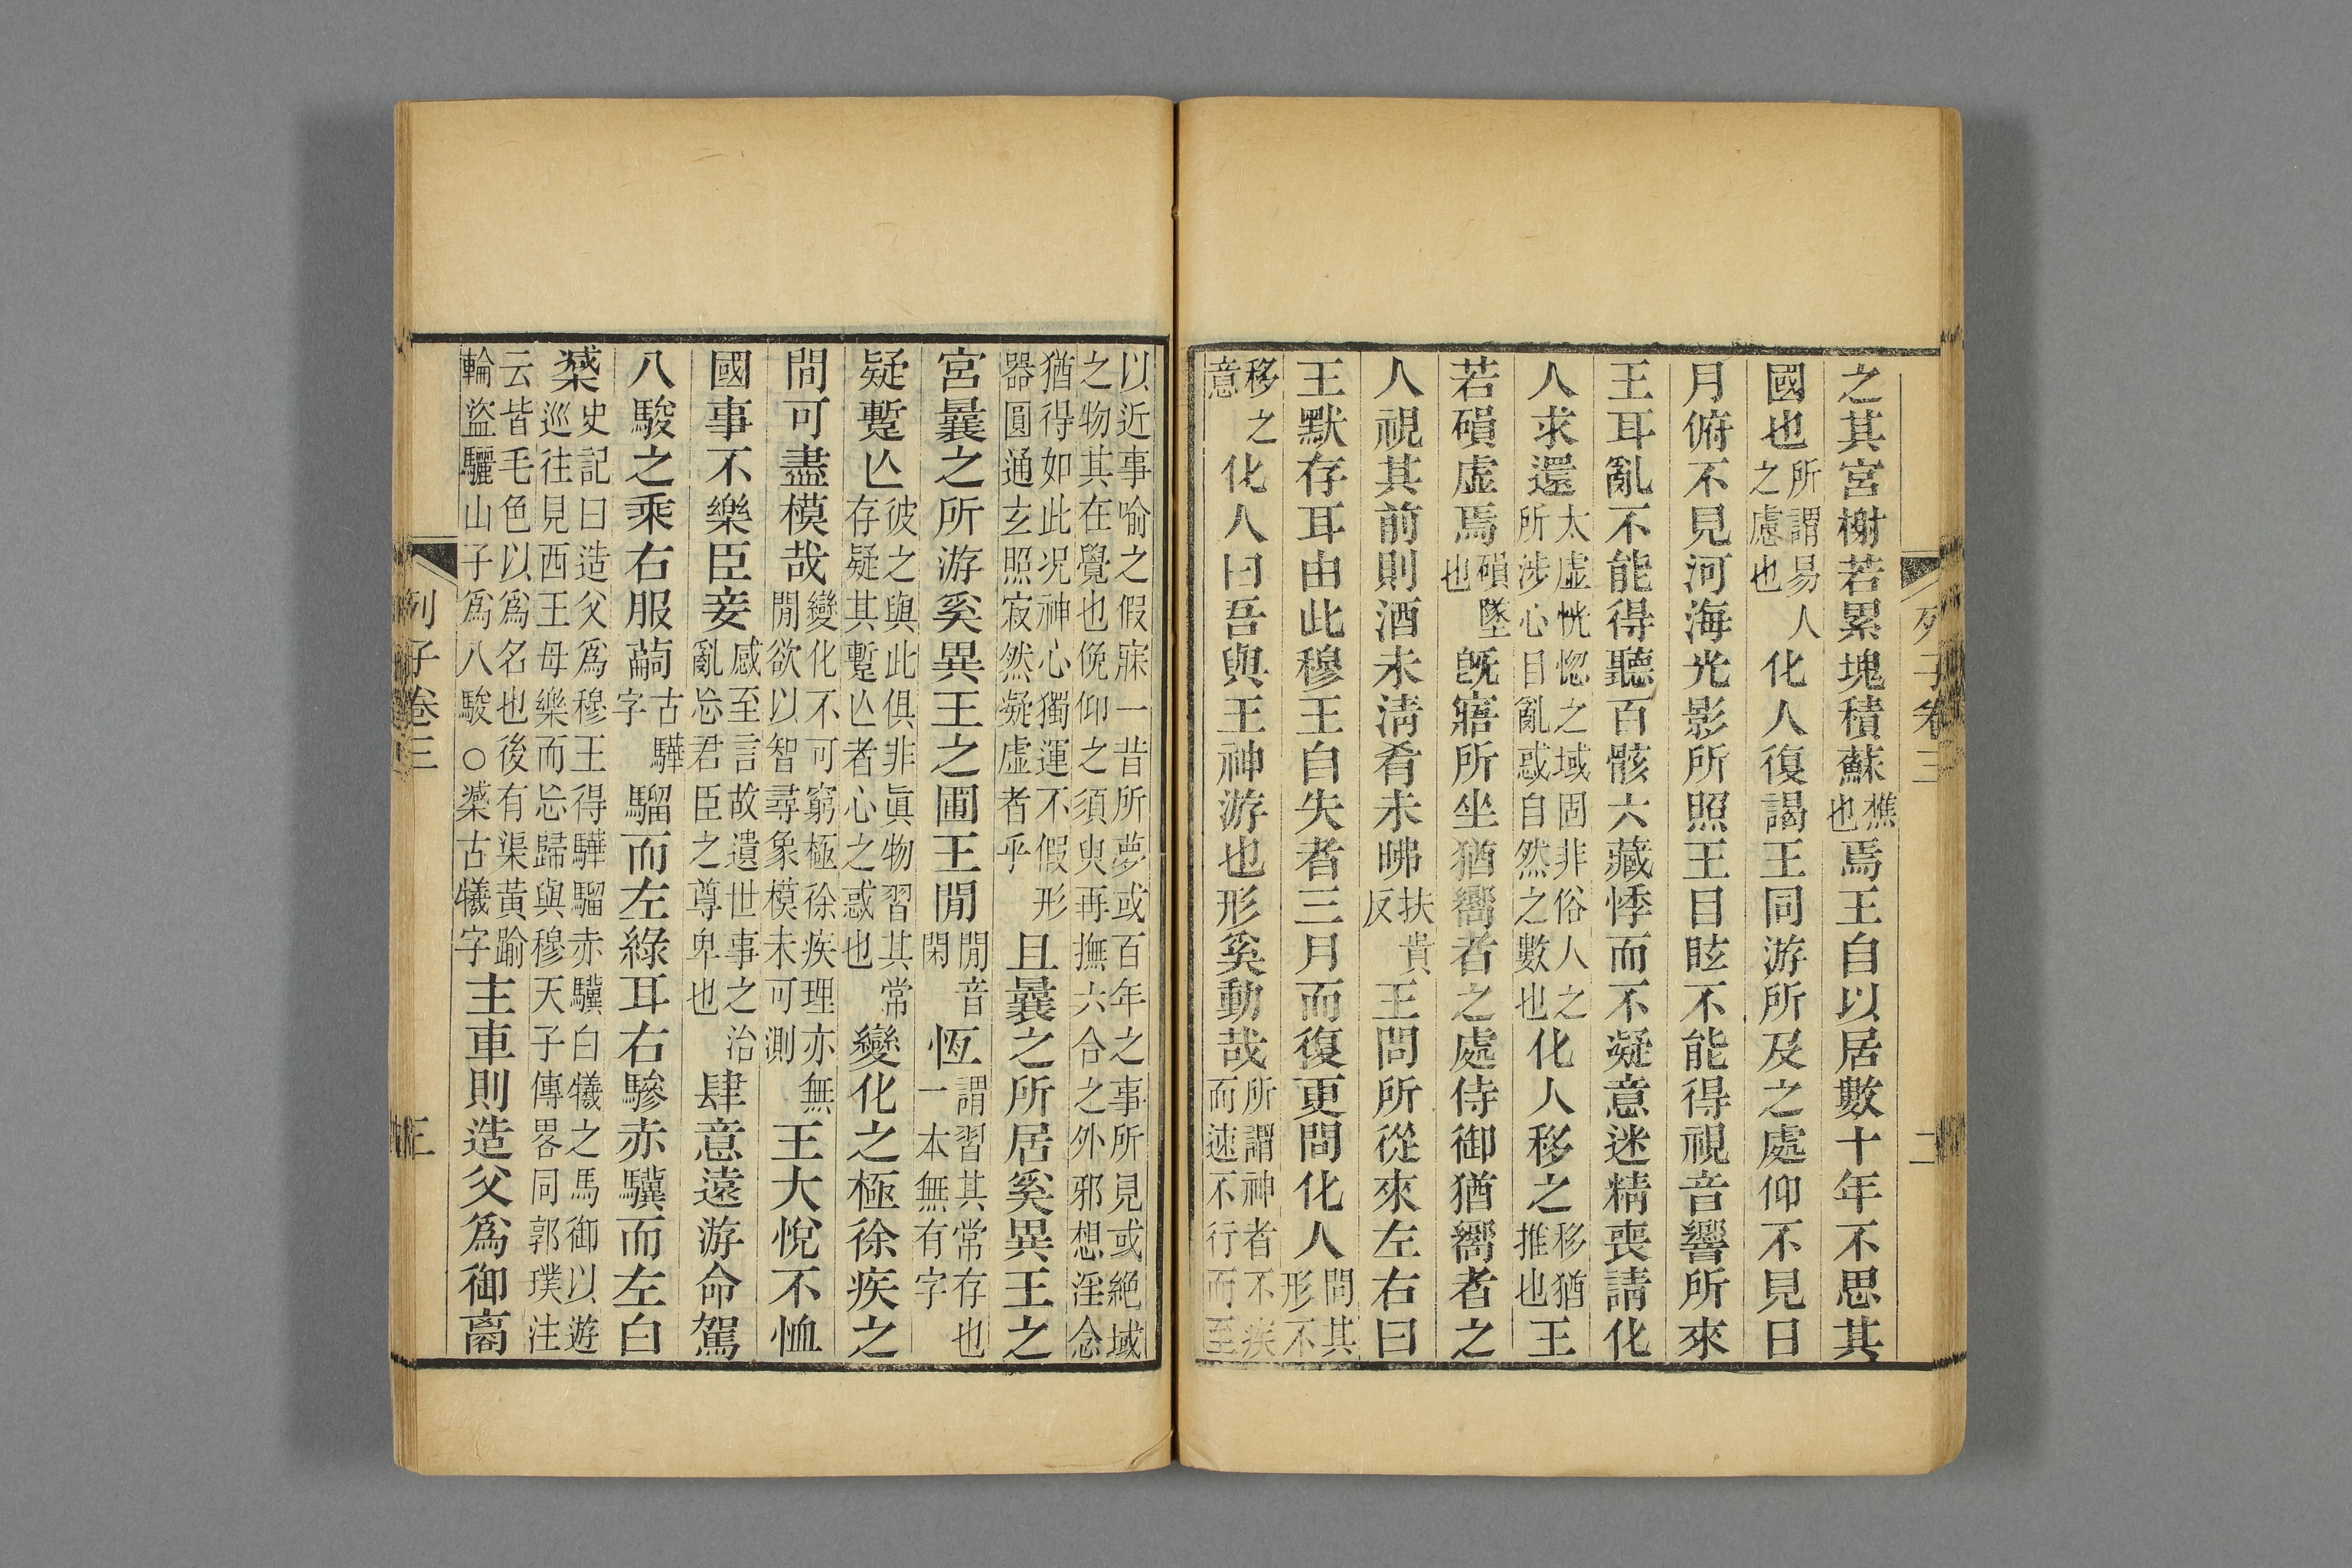 列子卷三 二
之其宮榭若累塊積蘇樵也焉王自以居數十年不思其
國也所謂易人之慮也化人復謁王同游所及之處仰不見日
月俯不見河海光影所照王目眩不能得視音響所來
王耳亂不能得聽百骸六藏悸而不凝意迷精喪請化
人求還太虛恍惚之域固非俗人之所涉心目亂惑自然之數也化人移之移猶推也王
若磒虛焉磒墜也既寤所坐猶嚮者之處侍御猶嚮者之
人視其前則酒未淸肴未昲扶貴反王問所從來左右曰
王默存耳由此穆王自失者三月而復更問化人問其形不
移之意化人曰吾與王神游也形奚動哉所謂神者不疾而速不行而至
以近事喻之假寐一昔所夢或百年之事所見或絕域
之物其在覺也俛仰之須臾再撫六合之外邪想淫念
猶得如此况神心獨運不假形
器圓通玄照寂然凝虛者乎且曩之所居奚異王之
宮曩之所游奚異王之圃王閒閒音閑恆謂習其常存也一本無有字
疑蹔亾彼之與此俱非眞物習其常存疑其蹔亾者心之惑也變化之極徐疾之
閒可盡模哉變化不可窮極徐疾理亦無閒欲以智尋象模未可測王大悅不恤
國事不樂臣妾感至言故遺世事之治亂忘君臣之尊卑也肆意遠游命駕
八駿之乘右服䮷古驊字騮而左綠耳右驂赤驥而左白
𣚊史記曰造父爲穆王得驊騮赤驥白犧之馬御以遊巡往見西王母樂而忘歸與穆天子傳畧同郭璞注
云皆毛色以爲名也後有渠黃踰
輪盜驪山子爲八駿○𣚊古犧字主車則造父爲御𧮫
列子卷三 三